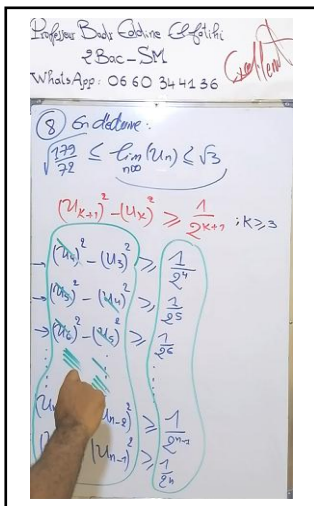 Professeur Badr Eddine El fatihi
2Bac-SM
WhatsApp: 0660 344136
Excellent
8 En déduire:
√(179/72) ≤ lim n∞ (Un) ≤ √3
(U_{K+1})² - (U_K)² ≥ 1/2^{K+1} ; K ≥ 3
→ (U_4)² - (U_3)² ≥ 1/2^4
→ (U_5)² - (U_4)² ≥ 1/2^5
→ (U_6)² - (U_5)² ≥ 1/2^6
U_{n-2})² ≥ 1/2^{n-1}
(U_{n-1})² ≥ 1/2^n